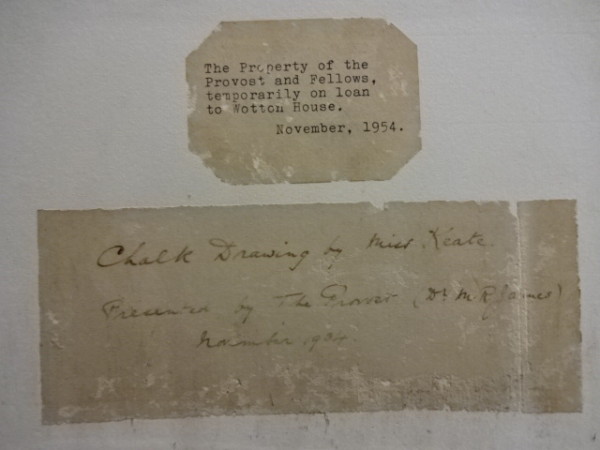 The Property of the
Provost and Fellows,
temporarily on loan
to Wotton House.
November, 1954.
Chalk Drawing by Miss Keate.
Presented by The Provost (Dr M R James)
November